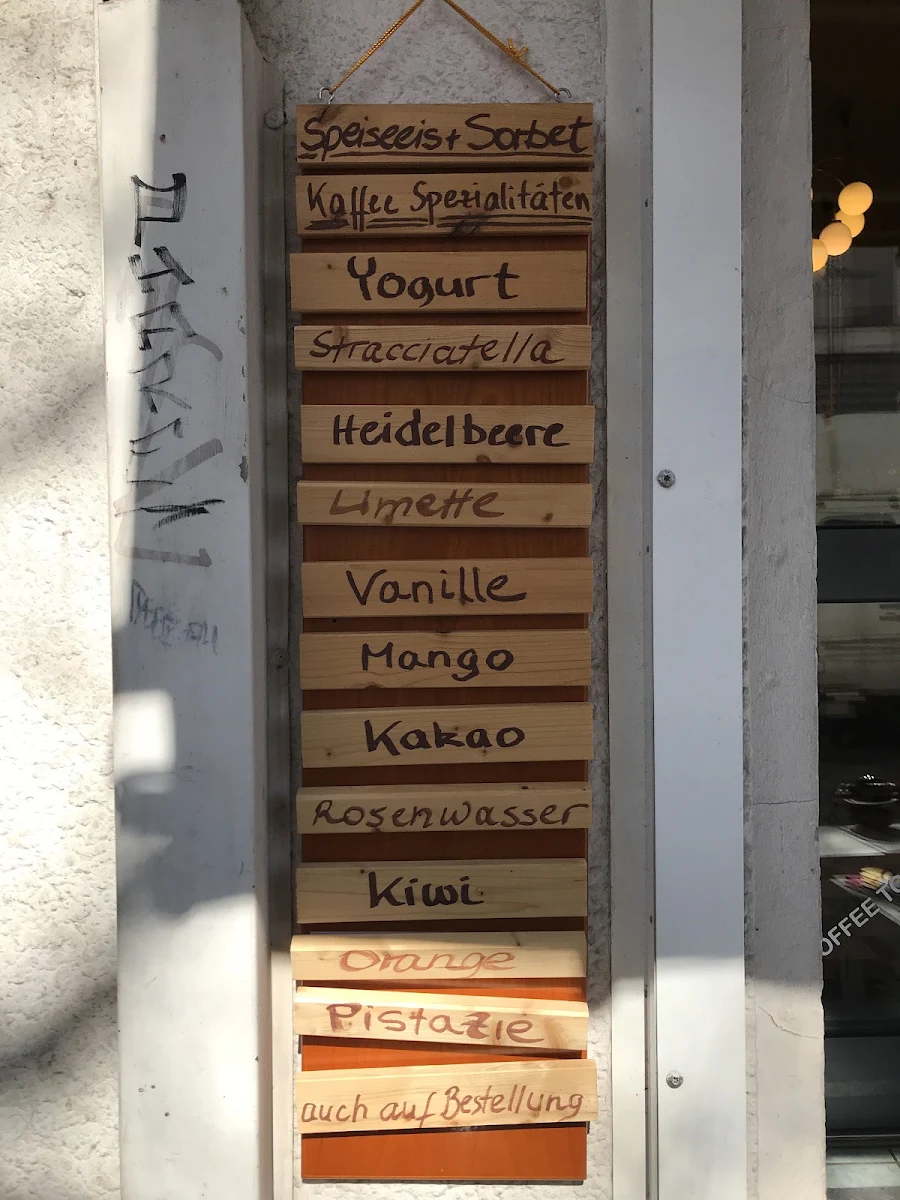 Speiseeis + Sorbet
Kaffee Spezialitäten
Yogurt
Stracciatella
Heidelbeere
Limette
Vanille
Mango
Kakao
Rosenwasser
Kiwi
Orange
Pistazie
auch auf Bestellung